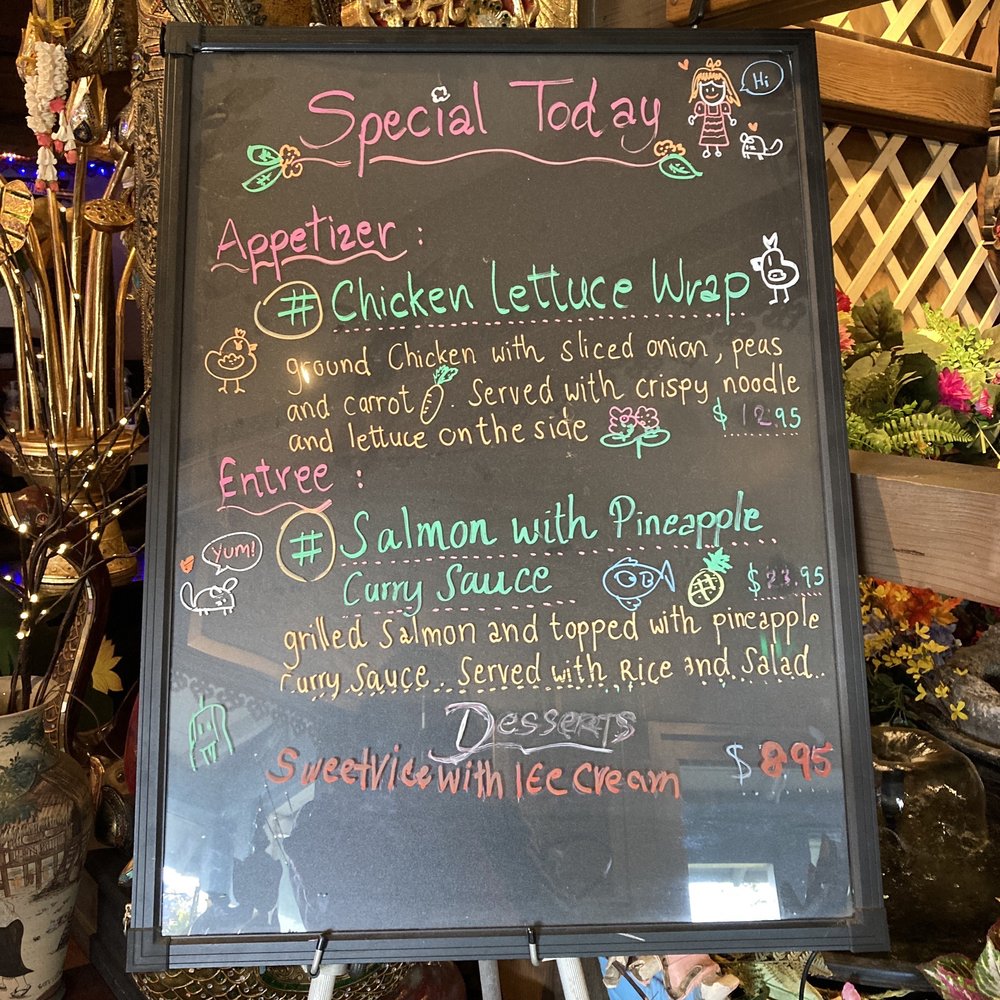 Special Today
Hi
Appetizer :
# Chicken lettuce Wrap
ground Chicken with sliced onion, peas
and carrot . Served with crispy noodle
and lettuce on the side $ 12.95
Entree :
# Salmon with Pineapple
Yum!
Curry Sauce $ 23.95
grilled Salmon and topped with pineapple
Curry Sauce . Served with Rice and Salad.
Desserts
Sweetrice with ICE Cream $ 8.95